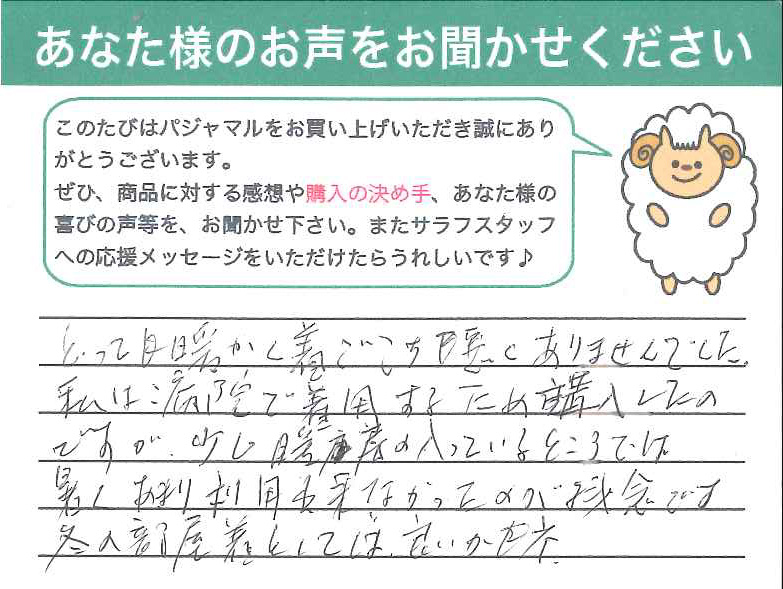 あなた様のお声をお聞かせください
このたびはパジャマルをお買い上げいただき誠にあり
がとうございます。
ぜひ、商品に対する感想や購入の決め手、あなた様の
喜びの声等を、お聞かせ下さい。またサラフスタッフ
への応援メッセージをいただけたらうれしいです♪
とっても暖かく着ごこち悪くありませんでした。
私は病院で着用するため購入したの
ですが、少し暖房の入っているところでは
暑くあまり利用出来なかったのが残念です
冬の部屋着としては、良いかも